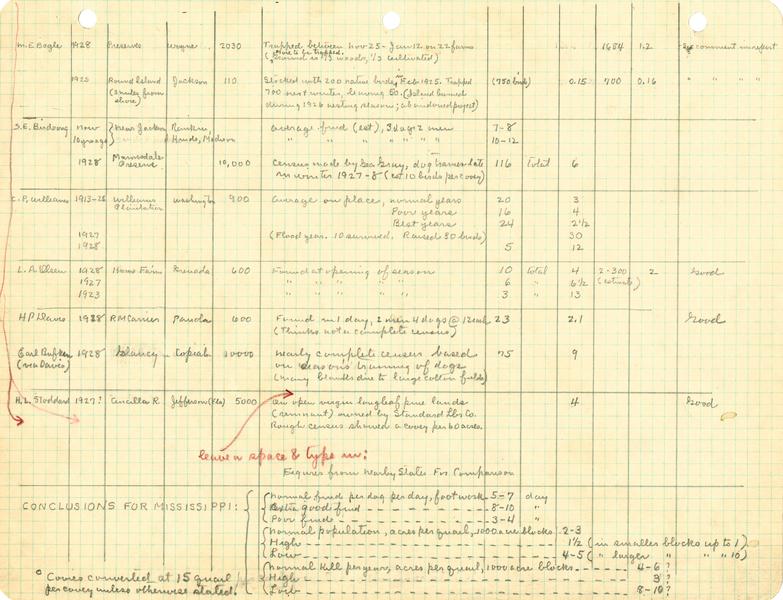 M.E. Bogle 1928 Preserve Wayne 2030 Trapped between Nov 25 - Jan 12 on 22 farms 1684 1.2 See comment in report
more to be trapped.
(Ground is ⅔ woods, ⅓ cultivated)
1925 Round Island Jackson 110 Stocked with 200 native birds, Feb 1925. Trapped (750 birds) 0.15 700 0.16 " " " "
(3 miles from 700 next winter, leaving 50. (Island burned
shore) during 1926 nesting season; abandoned project)
S.E. Birdsong now Near Jackson Rankin, average find (est), 3 dogs 2 men 7-8
10 yrs ago Hinds, Madison " " " " " " 10-12
1928 Preserve 10,000 Census made by Geo Gray, dog trainer late 116 Total 6
in winter 1927-8 (est 10 birds per covey)
C.P. Williams 1913-26 Williams Washington 900 Average on place, normal years 20 3
Plantation Poor years 16 4
Best years 24 2½
1927 (Flood year. 10 survived. Raised 30 birds) 30
1928 5 12
L.A. Olsen 1928 Home Farm Grenada 600 Found at opening of season 10 Total 4 2-300 2 Good
1927 " " " " 6 " 6½ (estimate)
1923 " " " " 3 " 13
H P Davis 1928 R M Carrier Panola 600 Found in 1 day, 2 men 4 dogs @ 12 each 23 2.1 Good
(Thinks not a complete census)
Earl Bufkin 1928 Copiah 10000 nearly complete census based 75 9
(via Davis) on season's training of dogs
(many blanks due to large cotton fields)
H.L. Stoddard 1927? Aucilla R. Jefferson (Fla) 5000 On open virgin longleaf pine lands 4 Good
(remnant) owned by Standard Lbr Co.
Rough census showed a covey per 60 acres.
leave a space & type in:
Figures from Nearby States For Comparison
CONCLUSIONS FOR MISSISSIPPI: Normal find per dog per day, foot work 5-7 day
Extra good find 8-10 "
Poor find 3-4 "
Normal population, acres per quail, 1000 acre blocks 2-3
High 1½ (in smaller blocks up to 1)
Low 4-5 ( " larger " " " 10)
° Coveys converted at 15 quail Normal kill per year, acres per quail, 1000 acre blocks 4-6 ?
per covey unless otherwise stated. High 3 ?
Low 8-10 ?